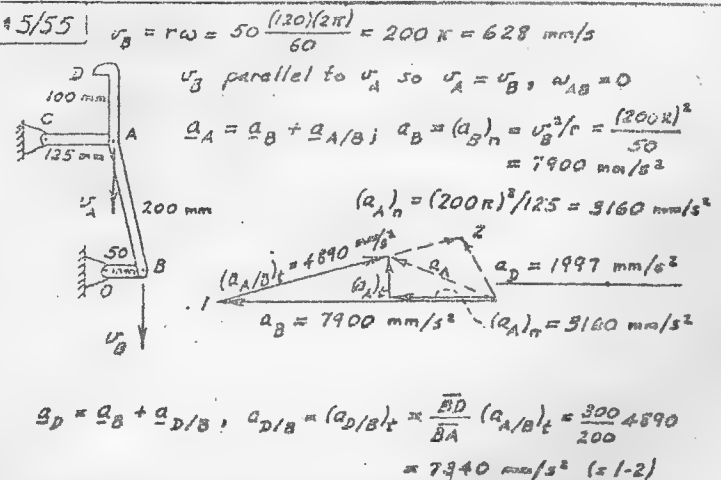 *5/55
v_B = rω = 50 (120)(2π)/60 = 200 π = 628 mm/s
v_B parallel to v_A so v_A = v_B, ω_AB = 0
D
100 mm
C
A
125 mm
a_A = a_B + a_A/B; a_B = (a_B)_n = v_B²/r = (200π)²/50
= 7900 mm/s²
v_A
200 mm
(a_A)_n = (200π)²/125 = 3160 mm/s²
50
mm
B
O
v_B
(a_A/B)_t = 4890 mm/s²
2
a_A
(a_A)_t
a_D = 1997 mm/s²
1
a_B = 7900 mm/s²
(a_A)_n = 3160 mm/s²
a_D = a_B + a_D/B, a_D/B = (a_D/B)_t = BD/BA (a_A/B)_t = 300/200 4890
= 7340 mm/s² (= 1-2)